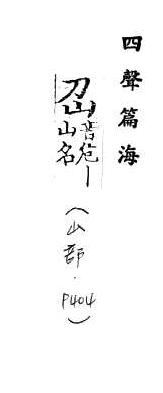 四聲篇海
音
山名
(山部.P404)